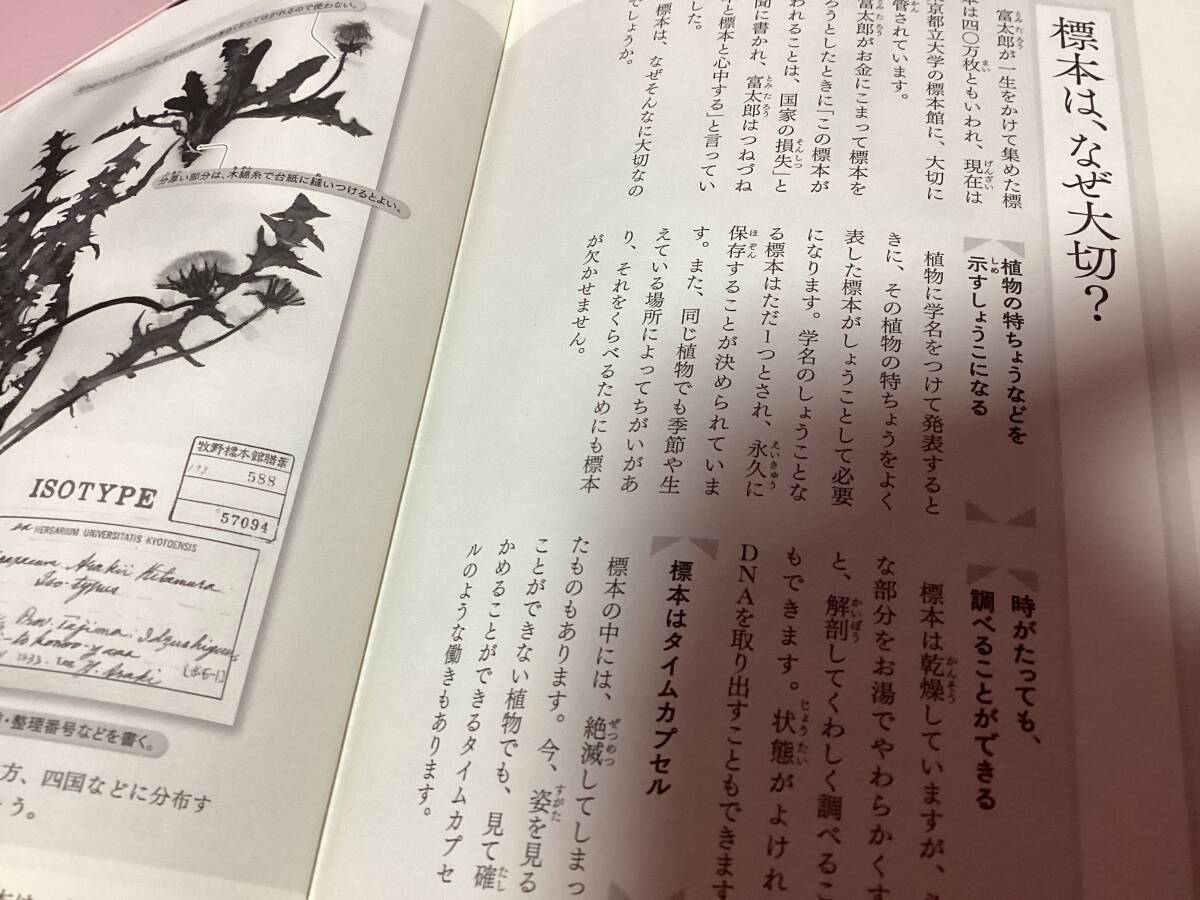 標本は、なぜ大切?
富太郎が一生をかけて集めた標
本は四〇万枚ともいわれ、現在は
京都立大学の標本館に、大切に
管されています。
富太郎がお金にこまって標本を
ろうとしたときに「この標本が
われることは、国家の損失」と
聞に書かれ、富太郎はつねづね
と標本と心中する」と言ってい
した。
標本は、なぜそんなに大切なの
でしょうか。
植物の特ちょうなどを
示すしょうこになる
植物に学名をつけて発表すると
きに、その植物の特ちょうをよく
表した標本がしょうことして必要
になります。学名のしょうことな
る標本はただ1つとされ、永久に
保存することが決められていま
す。また、同じ植物でも季節や生
えている場所によってちがいがあ
り、それをくらべるためにも標本
が欠かせません。
時がたっても、
調べることができる
標本は乾燥していますが、
な部分をお湯でやわらかくす
と、解剖してくわしく調べるこ
もできます。状態がよけれ
DNAを取り出すこともできます
標本はタイムカプセル
標本の中には、絶滅してしまっ
たものもあります。今、姿を見る
ことができない植物でも、見て確
かめることができるタイムカプセ
ルのような働きもあります。
はがれるので使わない。
分厚い部分は、木綿糸で台紙に縫いつけるとよい。
牧野標本館腊葉
588
57094
ISOTYPE
ex HERBARIUM UNIVERSITATIS KYOTOENSIS
Arakii Kitamura
Isotypus
Prov. Tajima
1933. Leg. Araki
・整理番号などを書く。
方、四国などに分布す
う。